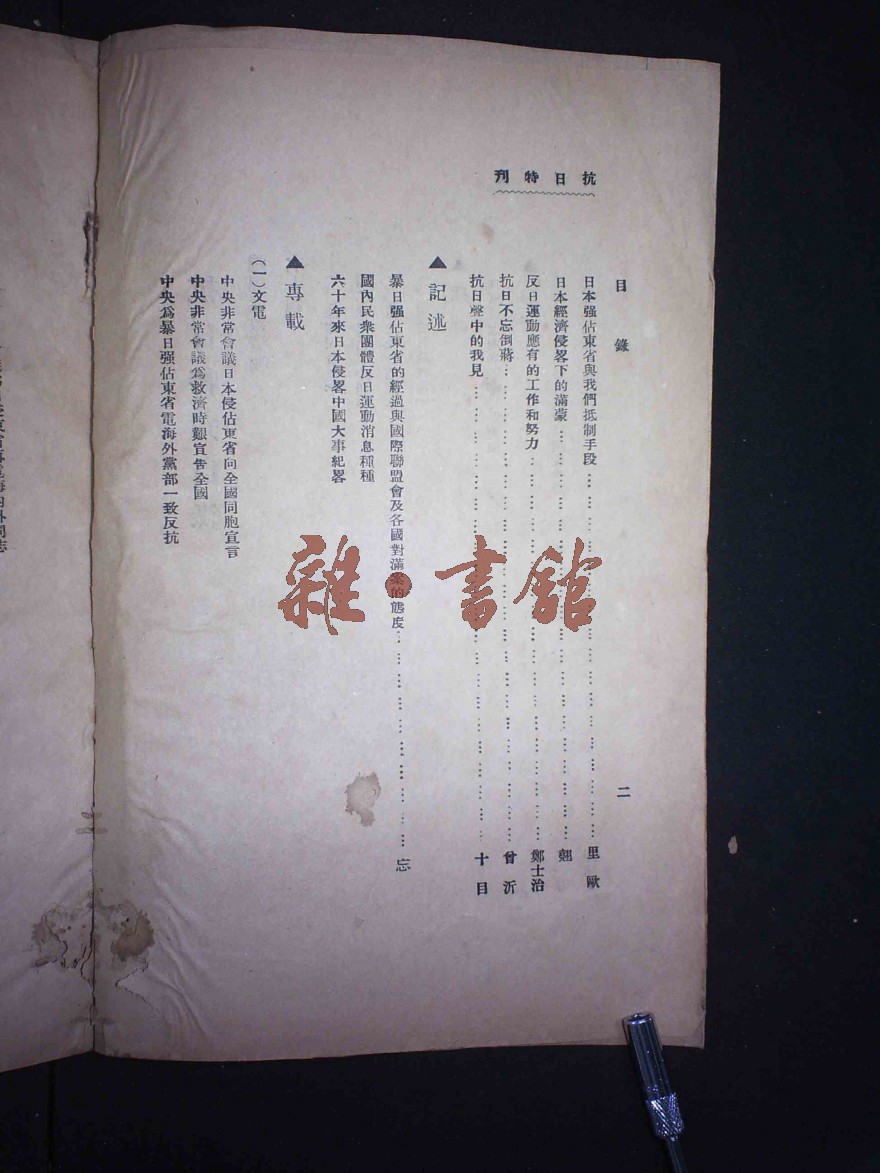 抗日特刊
目錄
二
日本强佔東省與我們抵制手段……里歐
日本經濟侵畧下的滿蒙……翹
反日運動應有的工作和努力……鄭士治
抗日不忘倒蔣……曾沂
抗日聲中的我見……十目
▲記述
暴日强佔東省的經過與國際聯盟會及各國對滿案的態度……忘
國內民衆團體反日運動消息種種
六十年來日本侵畧中國大事紀畧
▲專載
(一)文電
中央非常會議日本侵佔東省向全國同胞宣言
中央非常會議爲救濟時艱宣告全國
中央爲暴日强佔東省電海外黨部一致反抗
雜·書館